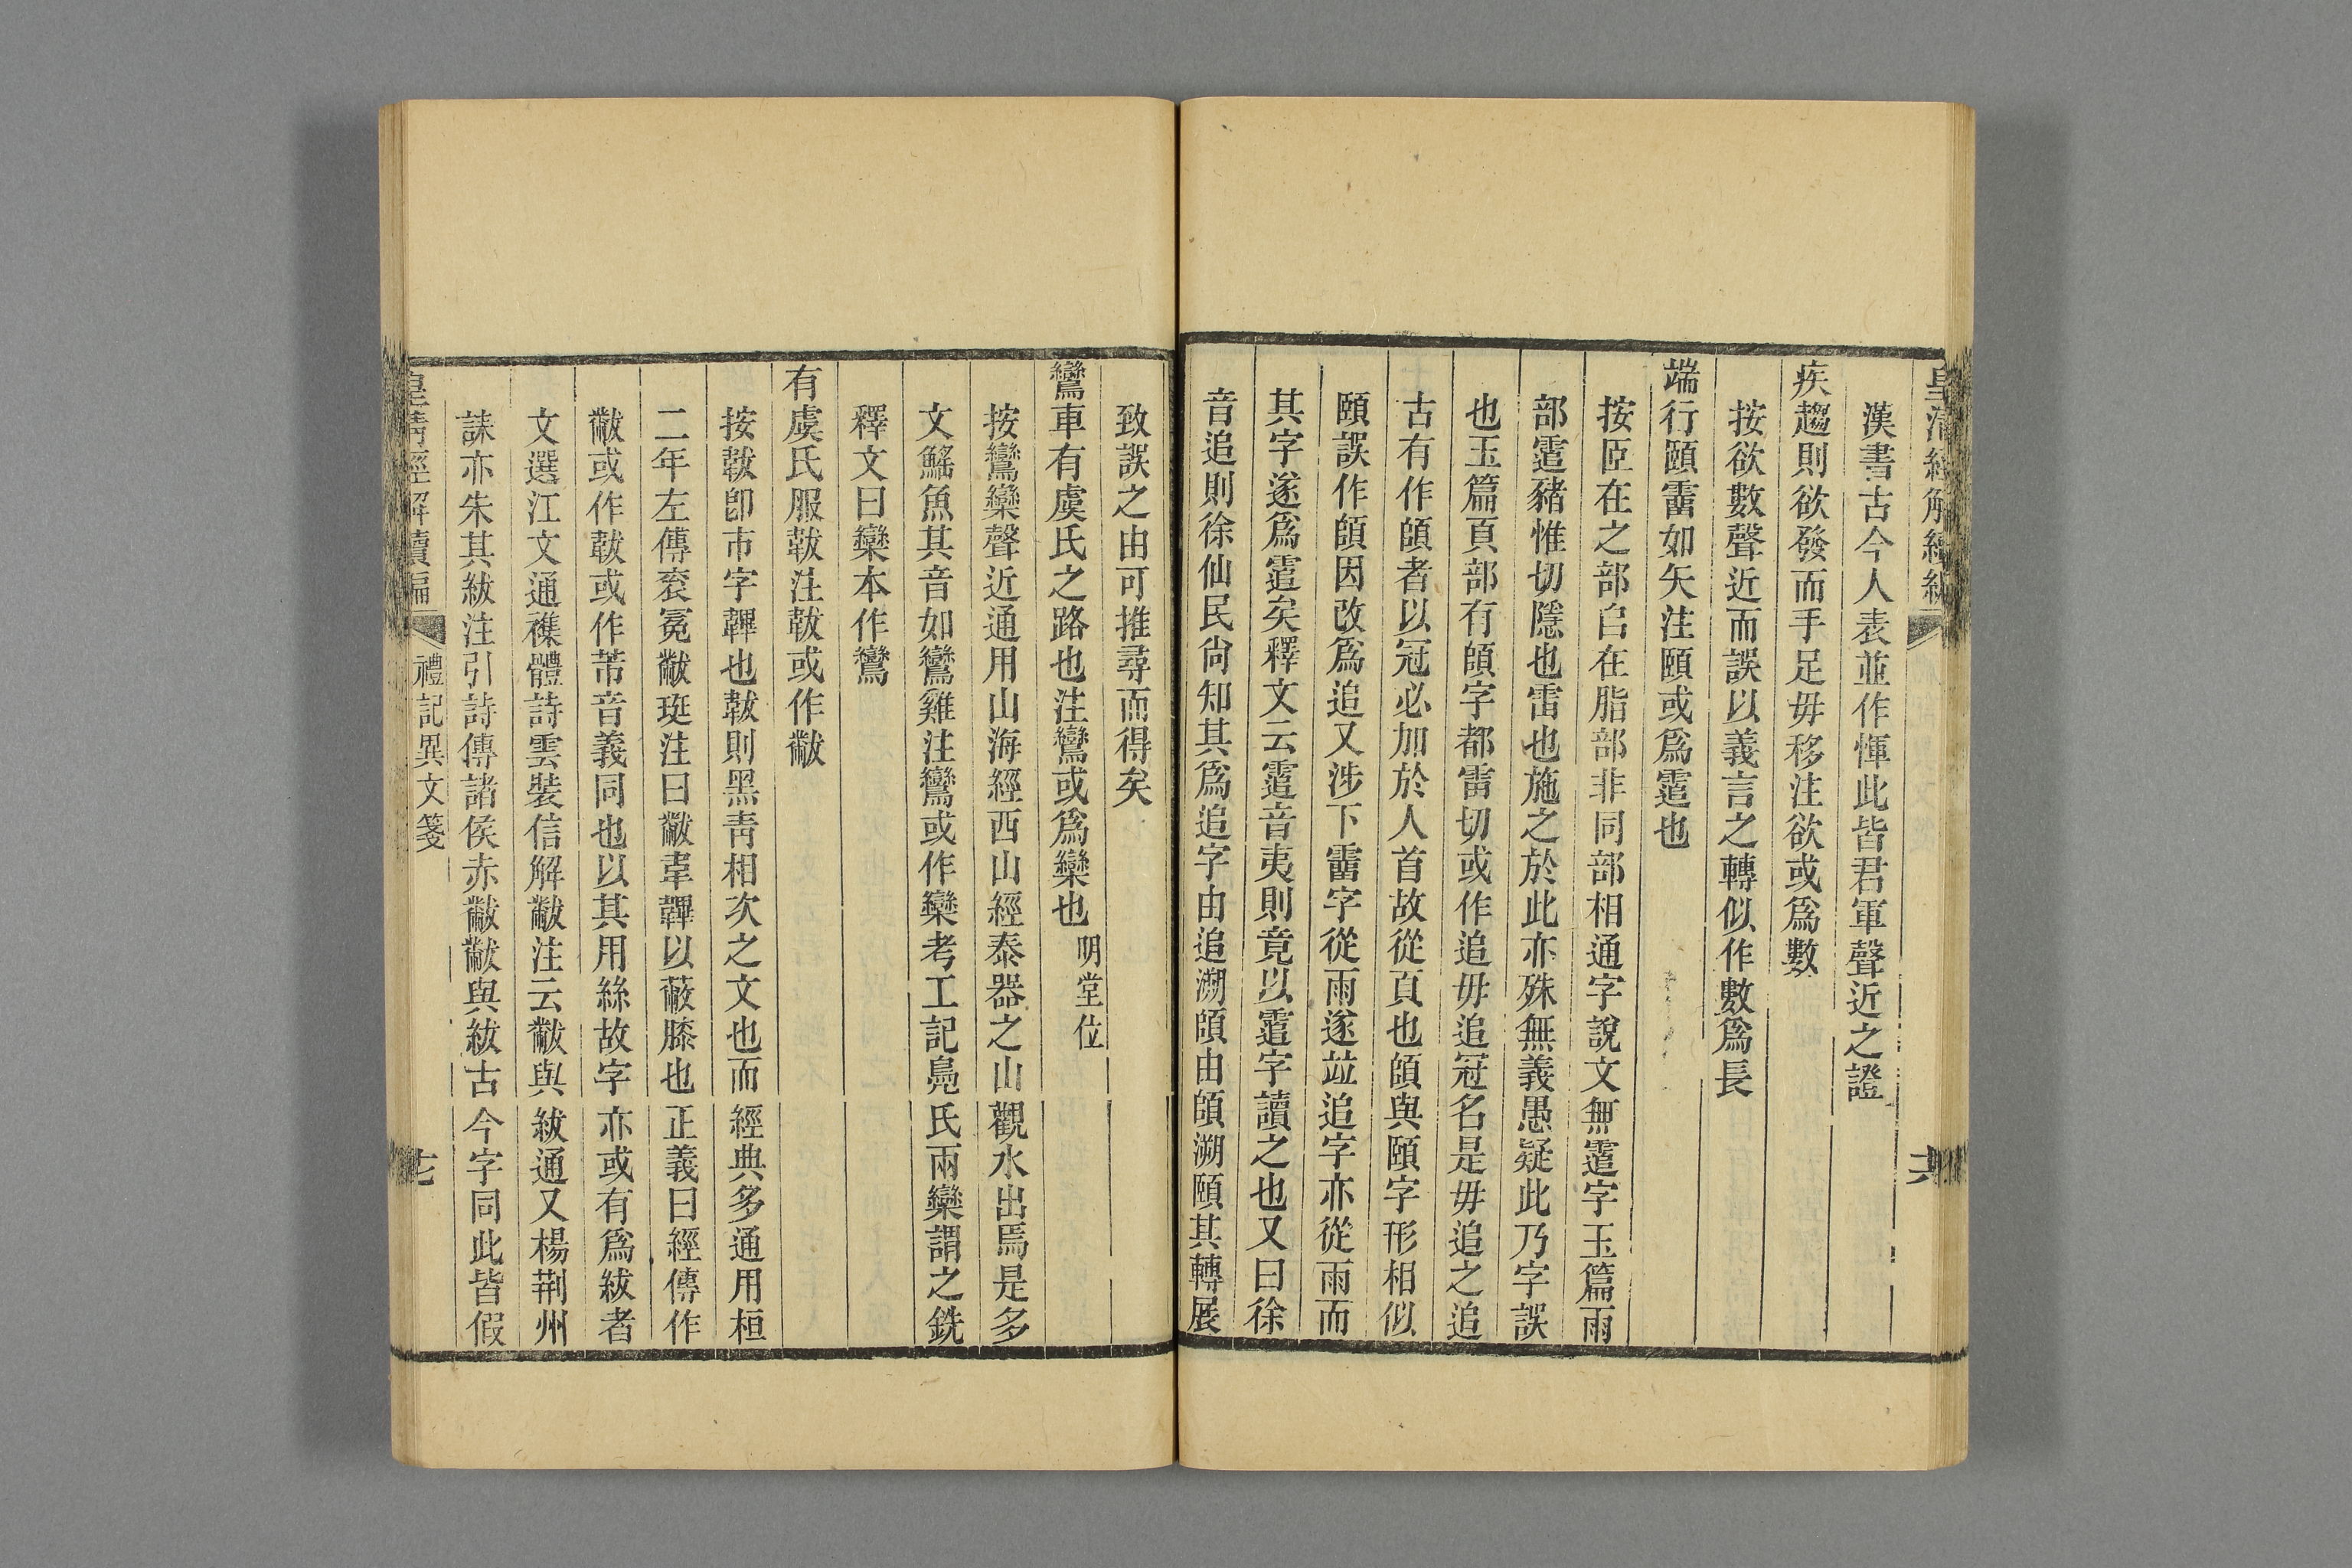 皇清經解續編
漢書古今人表並作惲此皆君軍聲近之證
疾趨則欲發而手足毋移注欲或爲數
按欲數聲近而誤以義言之轉似作數爲長
端行頤霤如矢注頤或爲霔也
按𦣞在之部𠂤在脂部非同部相通字說文無霔字玉篇雨
部霔豬惟切隱也雷也施之於此亦殊無義愚疑此乃字誤
也玉篇頁部有頧字都雷切或作追毋追冠名是毋追之追
古有作頧者以冠必加於人首故從頁也頧與頤字形相似
頤誤作頧因改爲追又涉下霤字從雨遂竝追字亦從雨而
其字遂爲霔矣釋文云霔音夷則竟以霔字讀之也又曰徐
音追則徐仙民尙知其爲追字由追溯頧由頧溯頤其轉展
致誤之由可推尋而得矣
鸞車有虞氏之路也注鸞或爲欒也明堂位
按鸞欒聲近通用山海經西山經泰器之山觀水出焉是多
文鰩魚其音如鸞雞注鸞或作欒考工記鳧氏兩欒謂之銑
釋文曰欒本作鸞
有虞氏服韍注韍或作黻
按韍卽市字韠也黻則黑靑相次之文也而經典多通用桓
二年左傳袞冕黻珽注曰黻韋韠以蔽膝也正義曰經傳作
黻或作韍或作芾音義同也以其用絲故字亦或有爲紱者
文選江文通襍體詩雲裝信解黻注云黻與紱通又楊荆州
誄亦朱其紱注引詩傳諸侯赤黻黻與紱古今字同此皆假
皇清經解續編
禮記異文箋